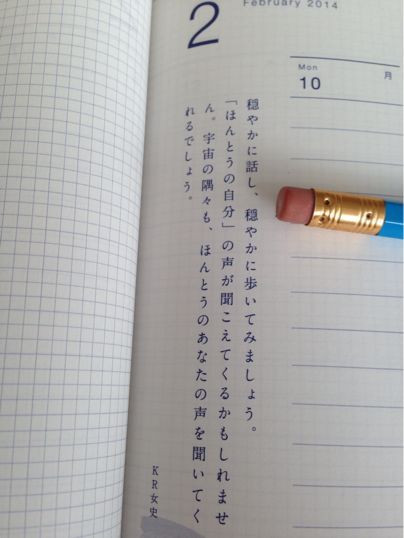 February 2014
2
Mon
月
10
穏やかに話し、穏やかに歩いてみましょう。
「ほんとうの自分」の声が聞こえてくるかもしれませ
ん。宇宙の隅々も、ほんとうのあなたの声を聞いてく
れるでしょう。
KR女史